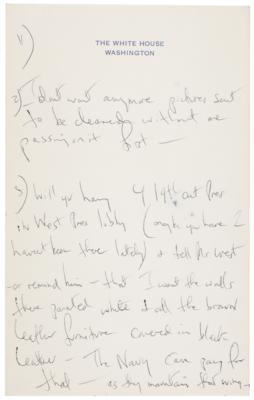 1)
THE WHITE HOUSE
WASHINGTON
2) I don't want anymore pictures sent
to be cleaned without me
passing on it first —
3) Will you hang 4 19th cent Pres
in West Pres lobby ( you have I
haven't been there lately) & tell Mr West
or remind him — that I want the walls
there painted white & all the brown
leather furniture covered in black
leather — The Navy can pay for
that — as they maintain that wing —